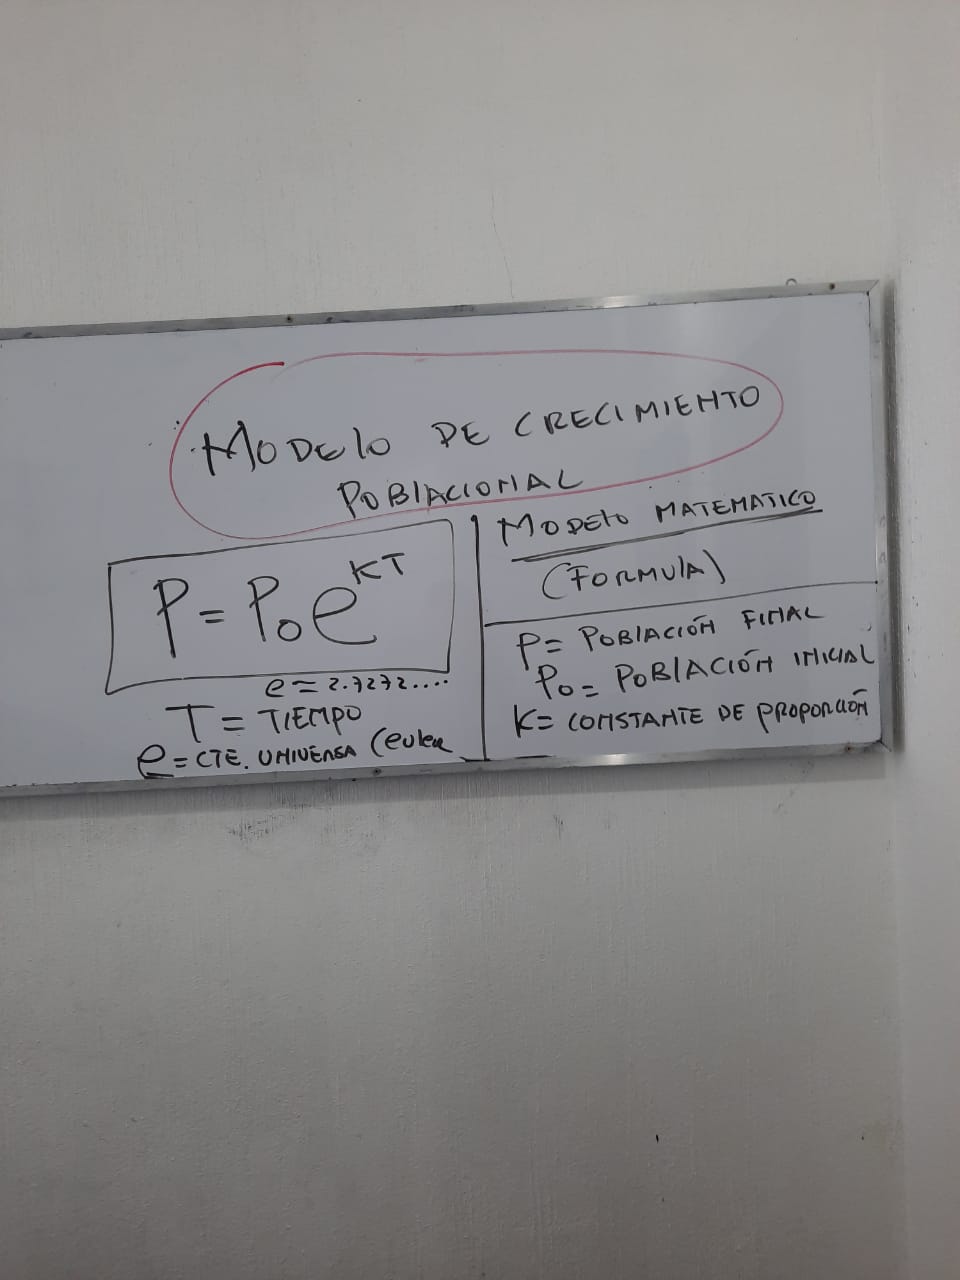 MODELO DE CRECIMIENTO
POBLACIONAL
P = P₀e^KT
e = 2.7272....
T = TIEMPO
e = CTE. UNIVERSA (euler
MODELO MATEMATICO
(FORMULA)
P = POBLACIÓN FINAL
P₀ = POBLACIÓN INICIAL
K = CONSTANTE DE PROPORCIÓN